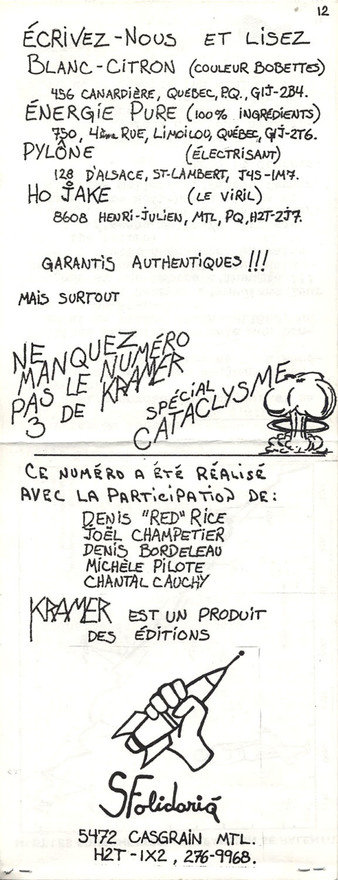 12
ÉCRIVEZ-NOUS ET LISEZ
BLANC-CITRON (COULEUR BOBETTES)
456 CANARDIÈRE, QUÉBEC, P.Q., G1J-2B4.
ÉNERGIE PURE (100% INGRÉDIENTS)
750, 4ème RUE, LIMOILOU, QUÉBEC, G1J-2T6.
PYLÔNE (ÉLECTRISANT)
128 D'ALSACE, ST-LAMBERT, J4S-1M7.
HO JAKE (LE VIRIL)
8608 HENRI-JULIEN, MTL, PQ, H2T-2J7.
GARANTIS AUTHENTIQUES !!!
MAIS SURTOUT
NE MANQUEZ
PAS LE NUMÉRO
3 DE KRAMER
SPÉCIAL
CATACLYSME
CE NUMÉRO A ÉTÉ RÉALISÉ
AVEC LA PARTICIPATION DE:
DENIS "RED" RICE
JOËL CHAMPETIER
DENIS BORDELEAU
MICHÈLE PILOTE
CHANTAL CAUCHY
KRAMER EST UN PRODUIT
DES ÉDITIONS
SFolidarią
5472 CASGRAIN MTL.
H2T-1X2, 276-9968.